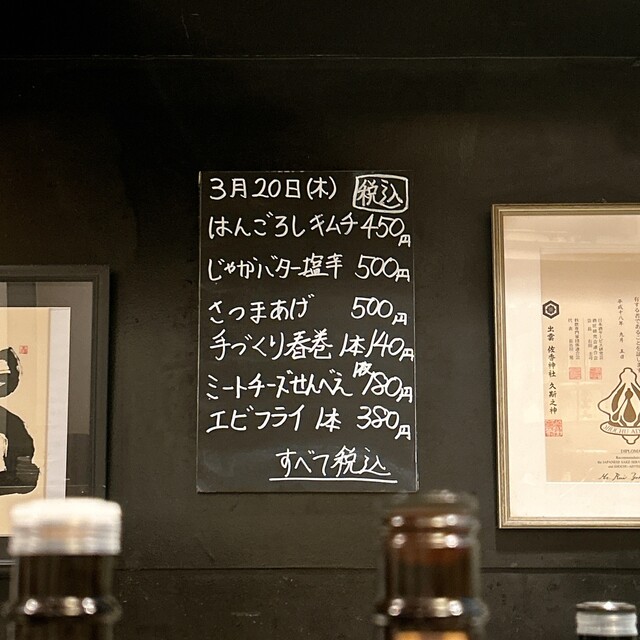 3月20日(木) 税込
はんごろしキムチ 450円
じゃがバター塩辛 500円
さつまあげ 500円
手づくり春巻 1本140円
ミートチーズせんべえ 1枚180円
エビフライ 1本 380円
すべて税込
平成十八年 九月 五日
出雲 佐香神社 久斯之神
DIPLOMA